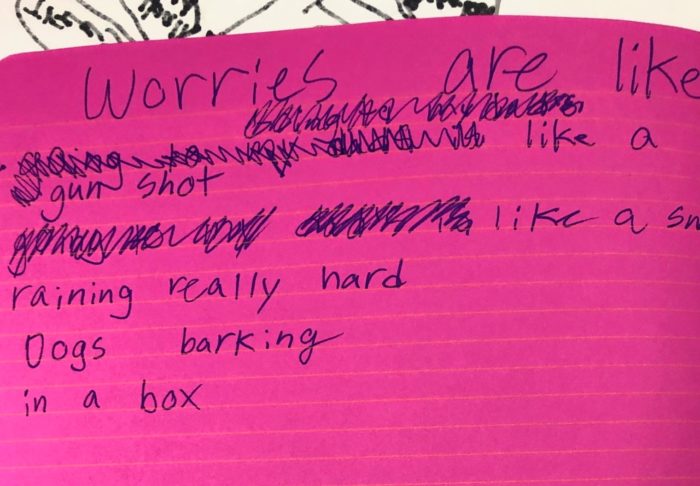 Worries are like
like a
gun shot
like a sn
raining really hard
Dogs barking
in a box